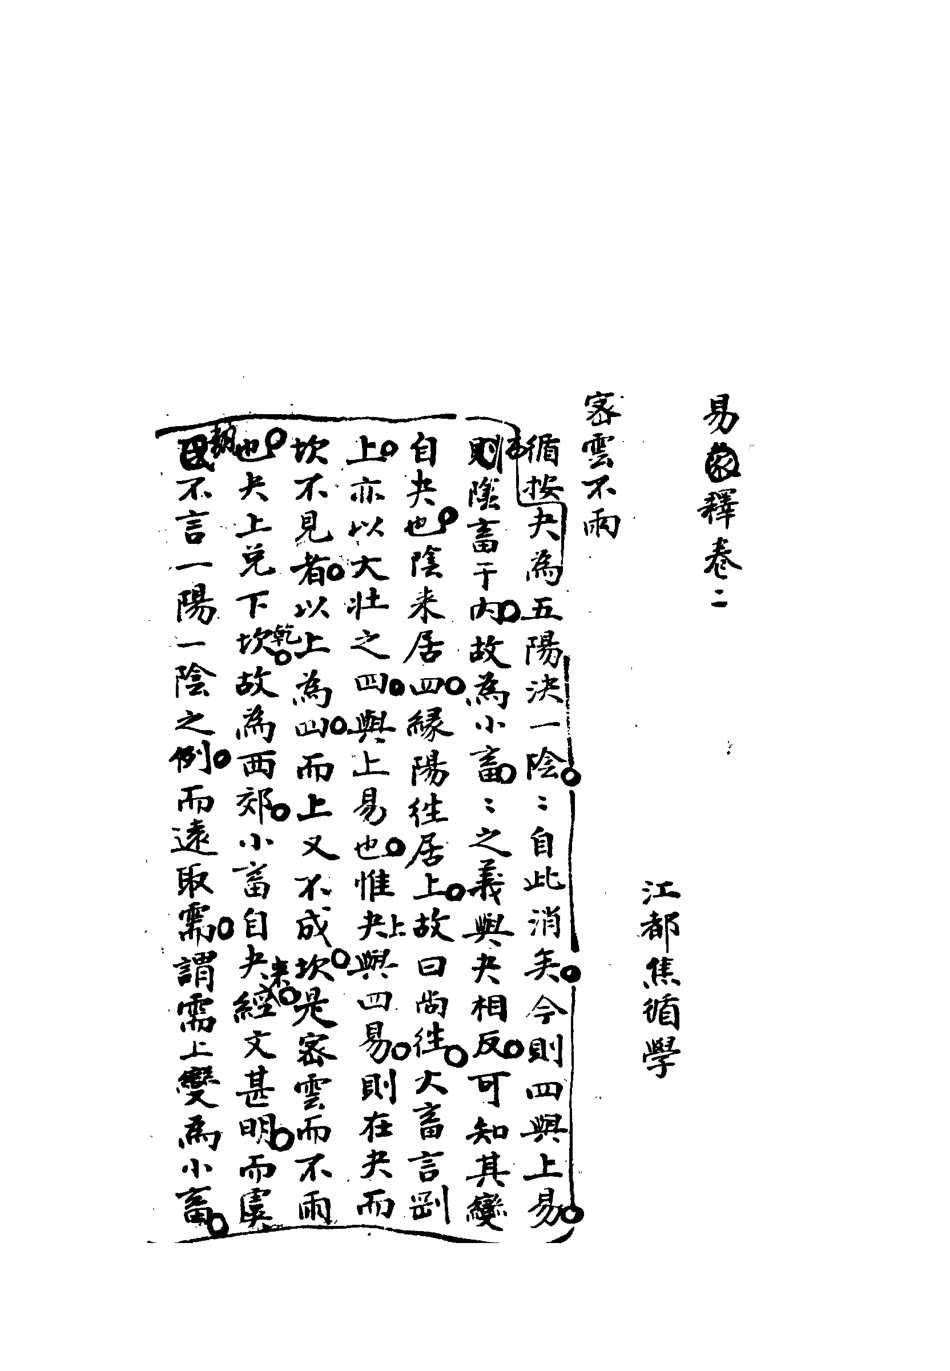 易釋卷二
江都焦循學
密雲不雨
循按夬為五陽決一陰〻自此消矣今則四與上易
則陰畜于內故為小畜〻之義與夬相反可知其變
自夬也陰来居四緣陽徃居上故曰尚徃大畜言剛
上亦以大壯之四與上易也惟夬上與四易則在夬而
坎不見者以上為四而上又不成坎是密雲而不雨
也夬上兌下乾故為西郊小畜自夬来經文甚明而虞
翻不言一陽一陰之例而遠取需謂需上變為小畜